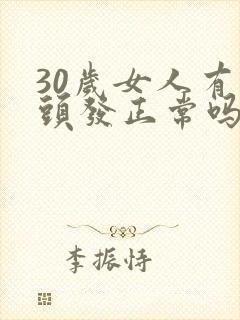 30歲女人有
頭發正常吗
李振恃